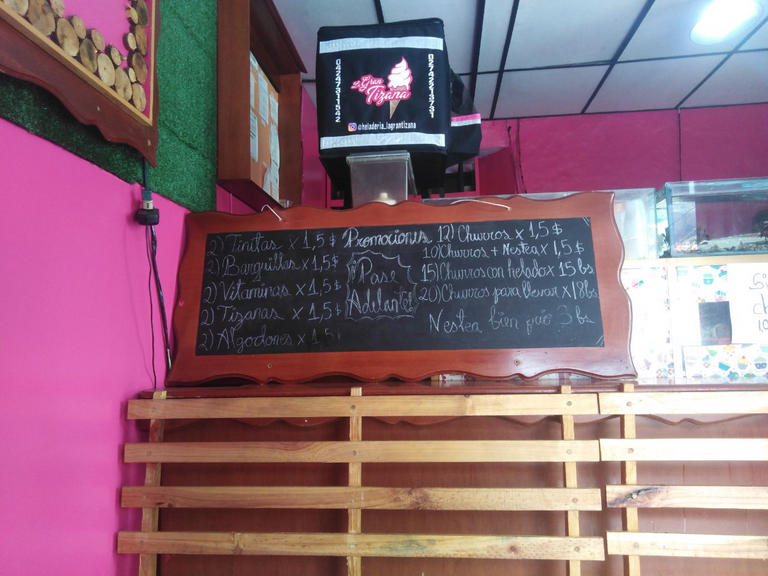 La Gran
Tizana
04247311542
02742214731
@heladeria_lagrantizana
Promociones
2) Tinitas x 1,5 $
2) Barquillas x 1,5 $
2) Vitaminas x 1,5 $
2) Tizanas x 1,5 $
2) Algodones x 1,5
Pase
Adelante!
12) Churros x 1,5 $
10) Churros + Nestea x 1,5 $
15) Churros con helado x 15 bs
20) Churros para llevar x 18 bs
Nestea bien frio 3 bs